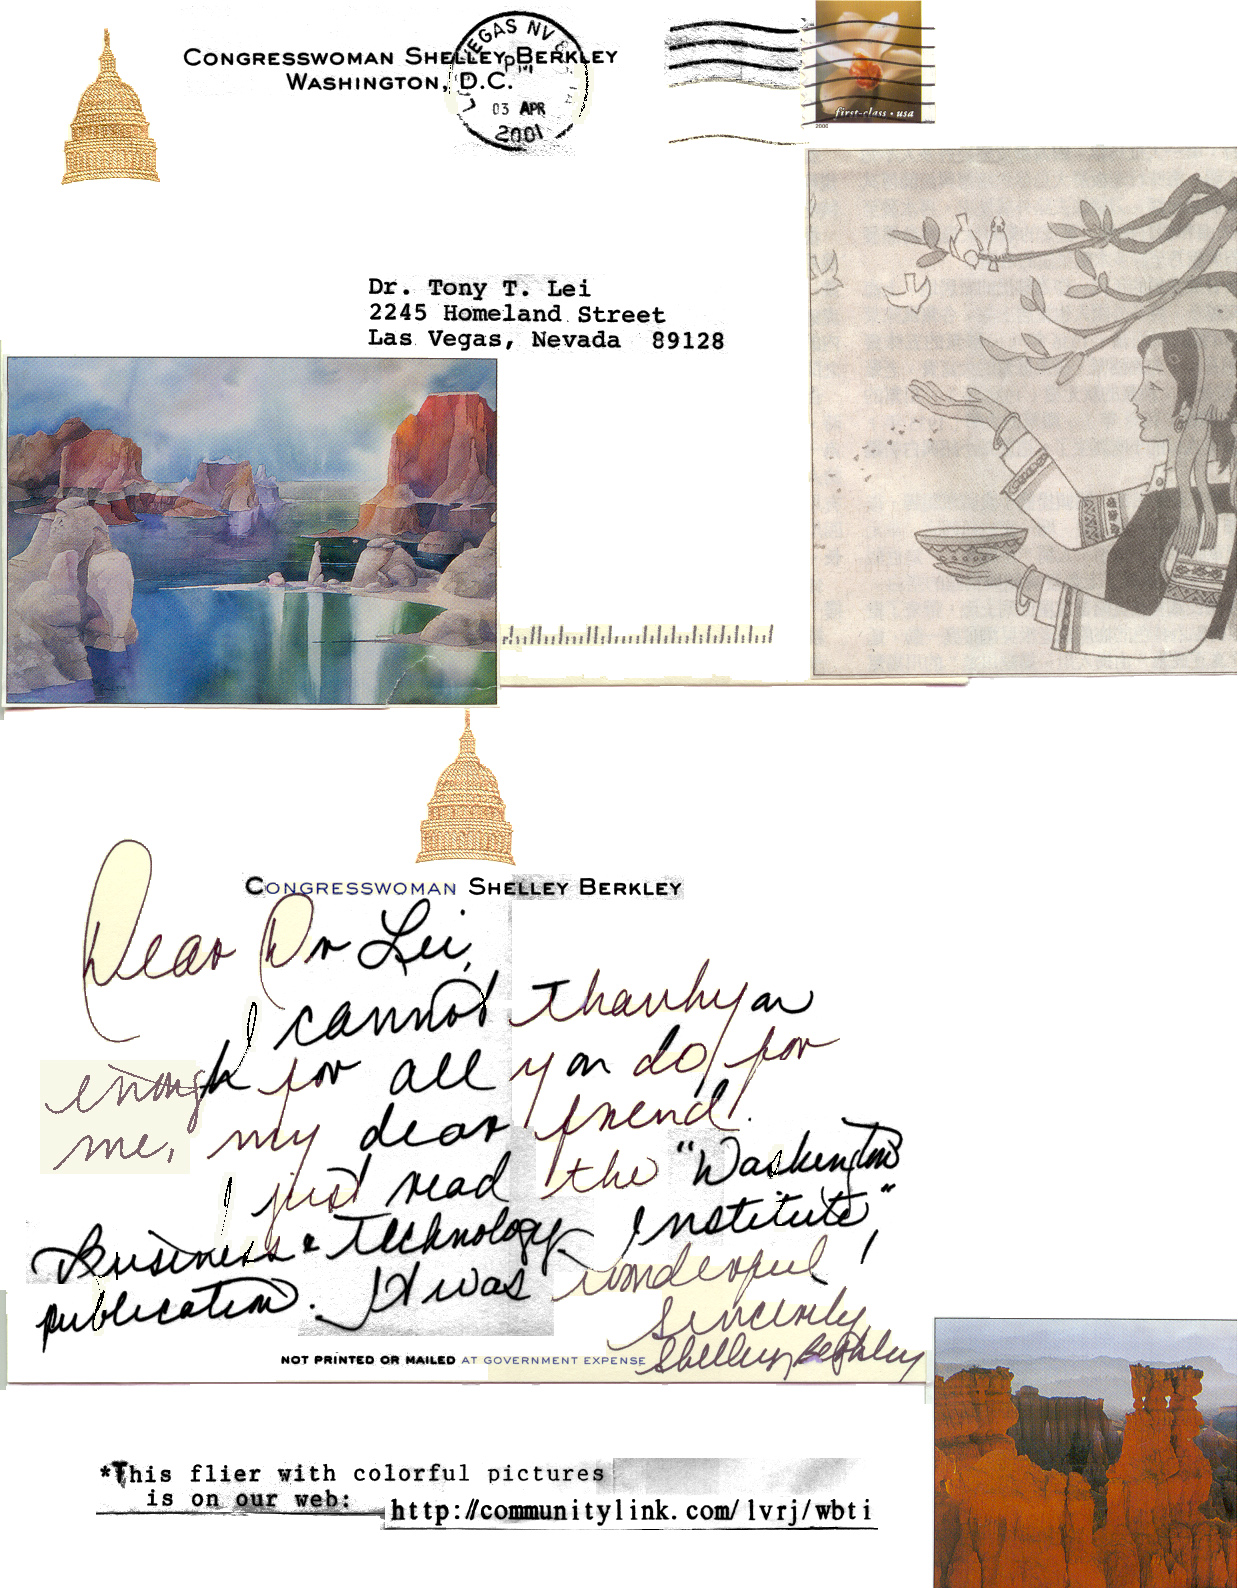 CONGRESSWOMAN SHELLEY BERKLEY
WASHINGTON, D.C.
LAS VEGAS NV
PM
03 APR
2001
first-class • usa
2000
Dr. Tony T. Lei
2245 Homeland Street
Las Vegas, Nevada 89128
CONGRESSWOMAN SHELLEY BERKLEY
Dear Dr Lei,
I cannot thank you
enough for all you do for
me, my dear friend.
I just read the "Washington
Business & Technology Institute"
publication. It was wonderful!
Sincerely,
Shelley Berkley
NOT PRINTED OR MAILED AT GOVERNMENT EXPENSE
*This flier with colorful pictures
is on our web: http://communitylink.com/lvrj/wbti